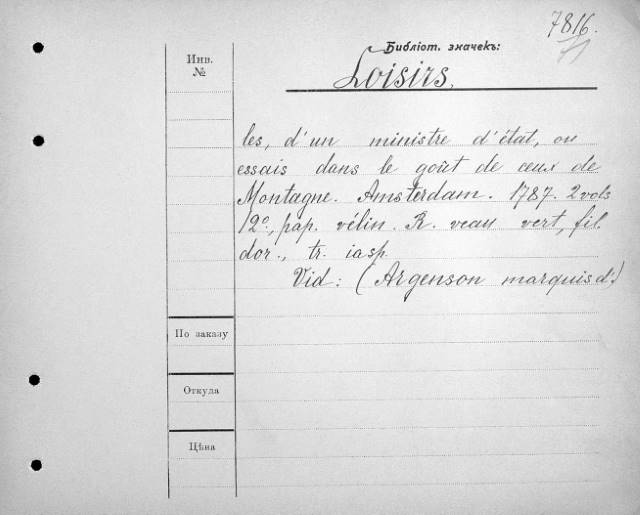 7816.
Библіот. значекъ:
Инв.
№
Loisirs,
les, d'un ministre d'état, ou
essais dans le goût de ceux de
Montagne. Amsterdam. 1787. 2 vols
12º, pap. vélin. R. veau vert, fil.
dor., tr. iasp.
Vid: (Argenson marquis d'.)
По заказу
Откуда
Цѣна